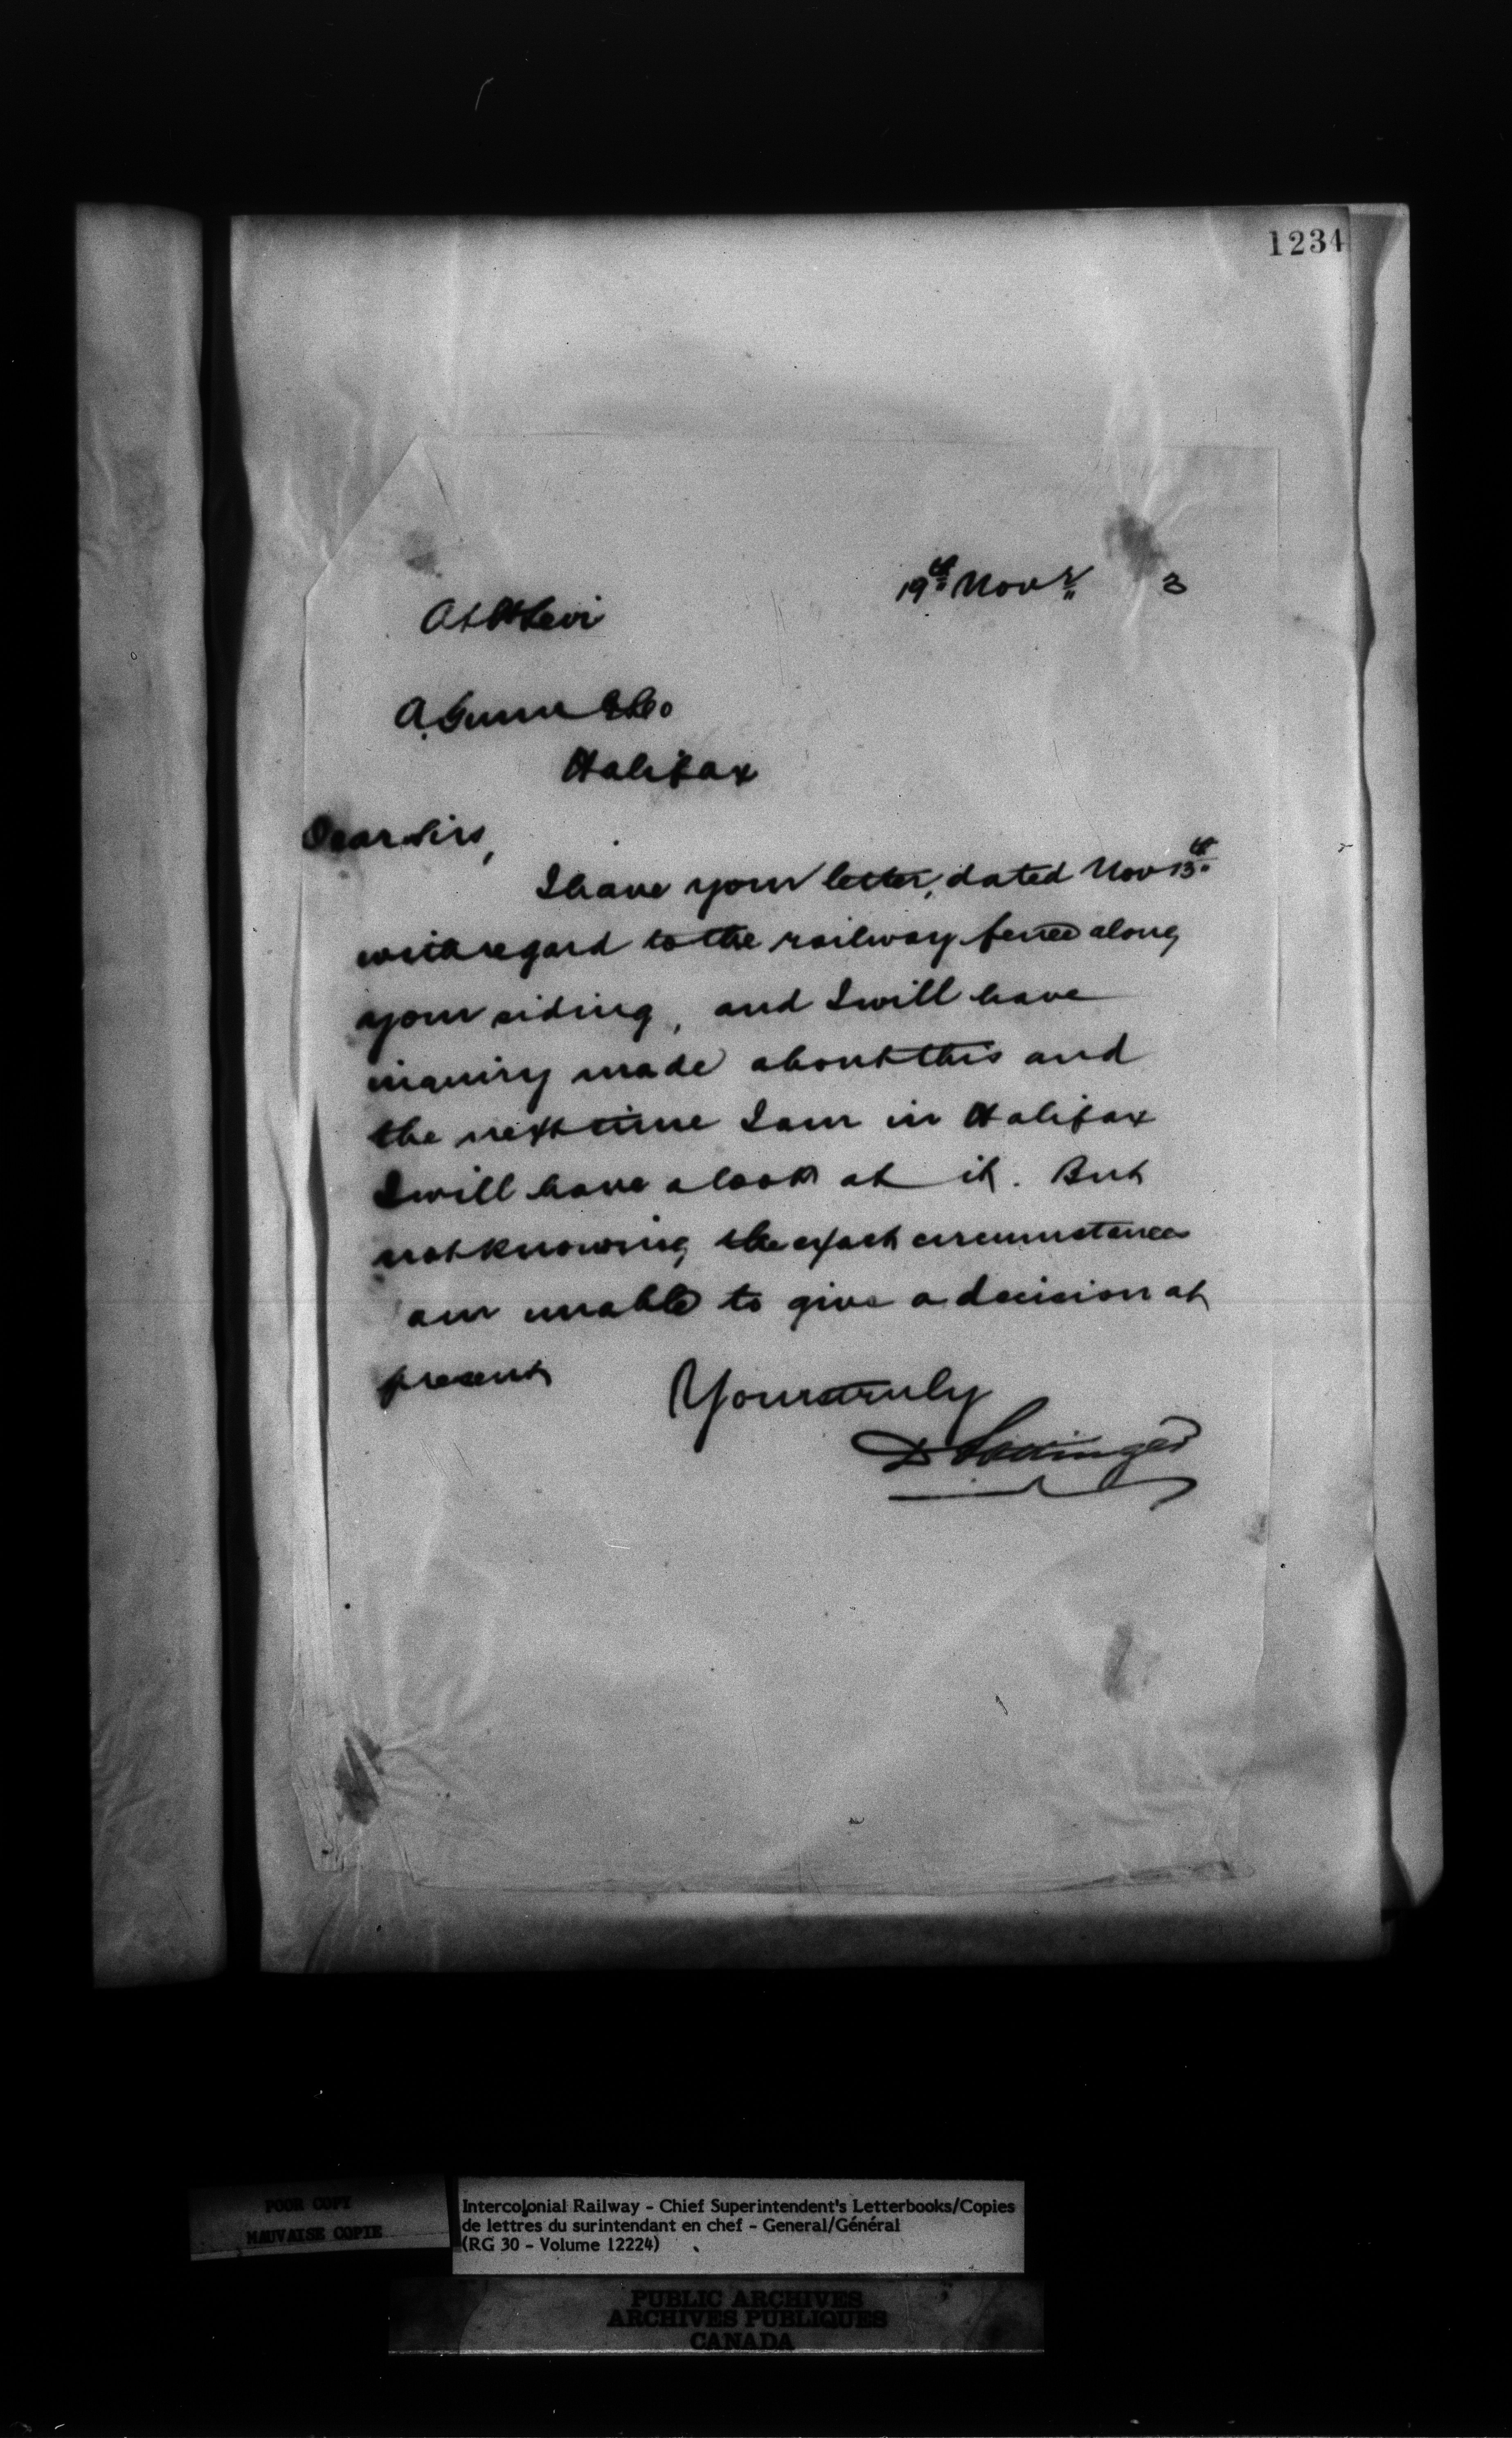 1234
19th Novr 3
At Pt Levi
A. Gunn & Co
Halifax
Dear Sirs,
I have your letter, dated Nov 13th
with regard to the railway fence along
your siding, and I will have
inquiry made about this and
the next time I am in Halifax
I will have a look at it. But
not knowing the exact circumstances
am unable to give a decision at
present
Yours truly
D Pottinger
POOR COPY
MAUVAISE COPIE
Intercolonial Railway - Chief Superintendent's Letterbooks/Copies
de lettres du surintendant en chef - General/Général
(RG 30 - Volume 12224)
PUBLIC ARCHIVES
ARCHIVES PUBLIQUES
CANADA